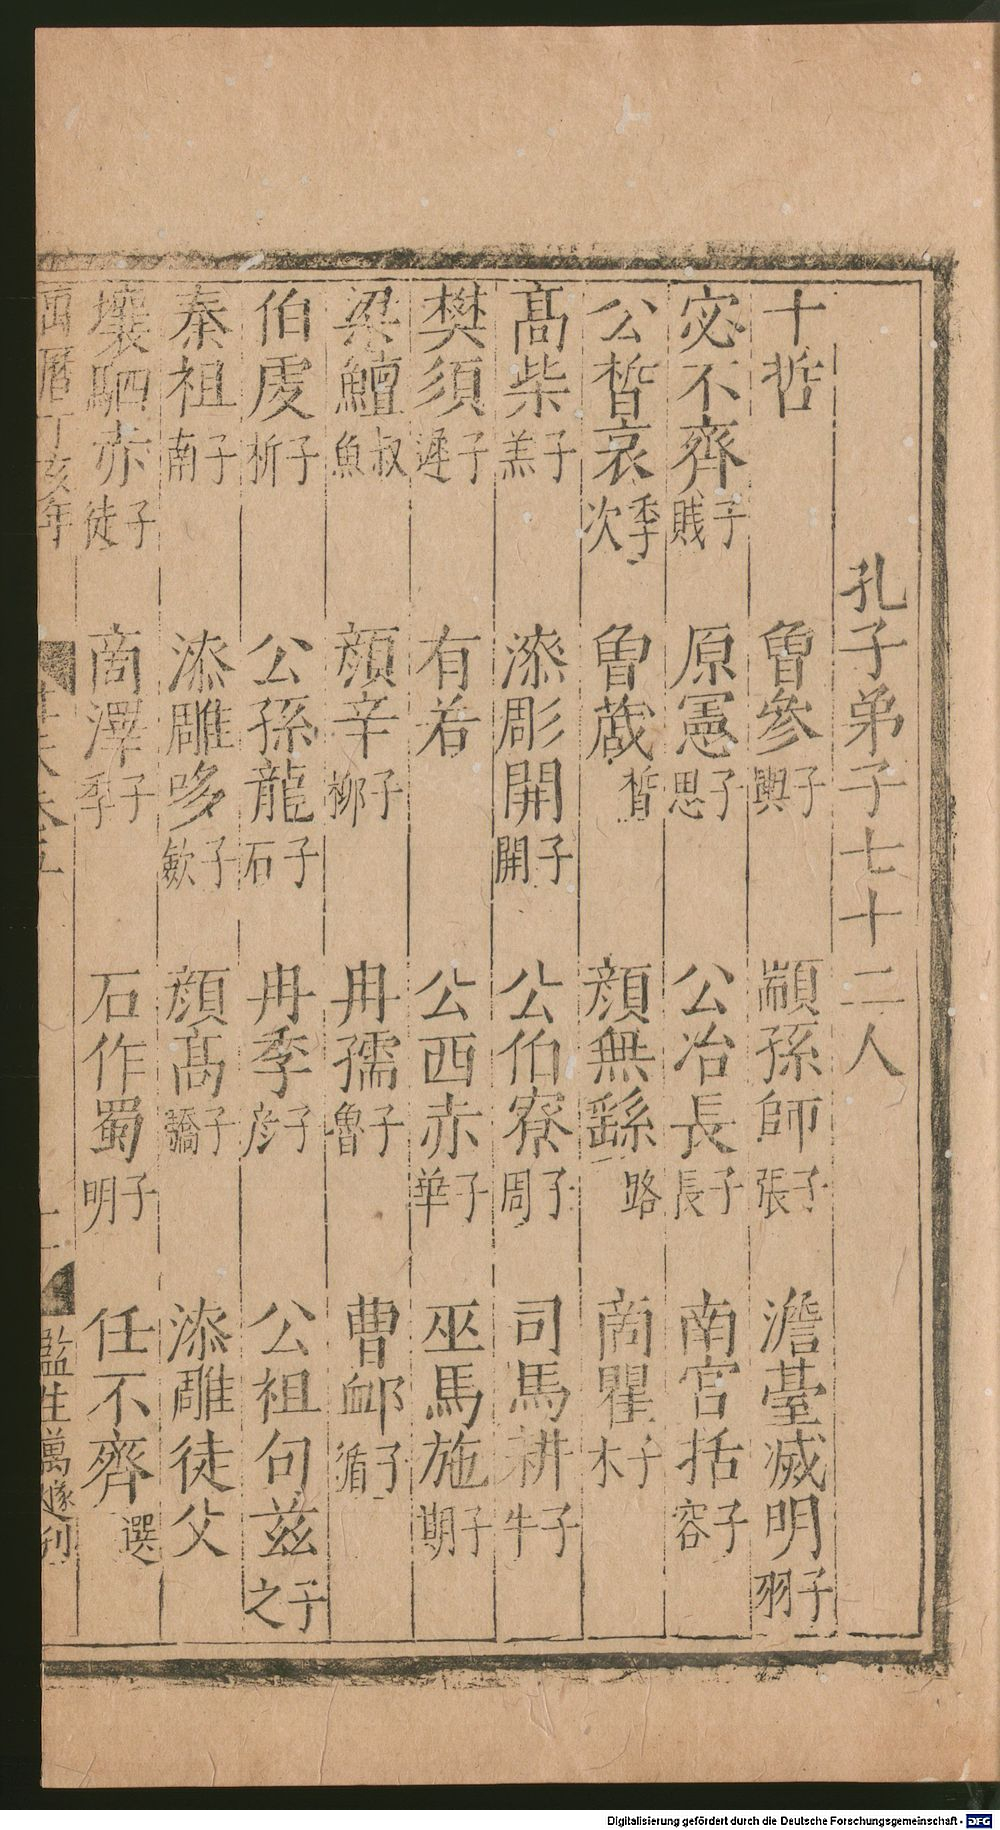 孔子弟子七十二人
十哲 曾參子輿 顓孫師子張 澹臺滅明子羽
宓不齊子賤 原憲子思 公冶長子長 南宮括子容
公晳哀季次 曾蒧晳 顔無繇路 商瞿子木
髙柴子羔 漆彫開子開 公伯寮子周 司馬耕子牛
樊須子遲 有若 公西赤子華 巫馬施子期
梁鱣叔魚 顔辛子柳 冉孺子魯 曹卹子循
伯虔子析 公孫龍子石 冉季子彦 公祖句兹子之
秦祖子南 漆雕哆子歛 顔髙子驕 漆雕徒父
壤駟赤子徒 商澤子季 石作蜀子明 任不齊選
萬曆丁亥年 卷五 監生萬遂刋
Digitalisierung gefördert durch die Deutsche Forschungsgemeinschaft - DFG